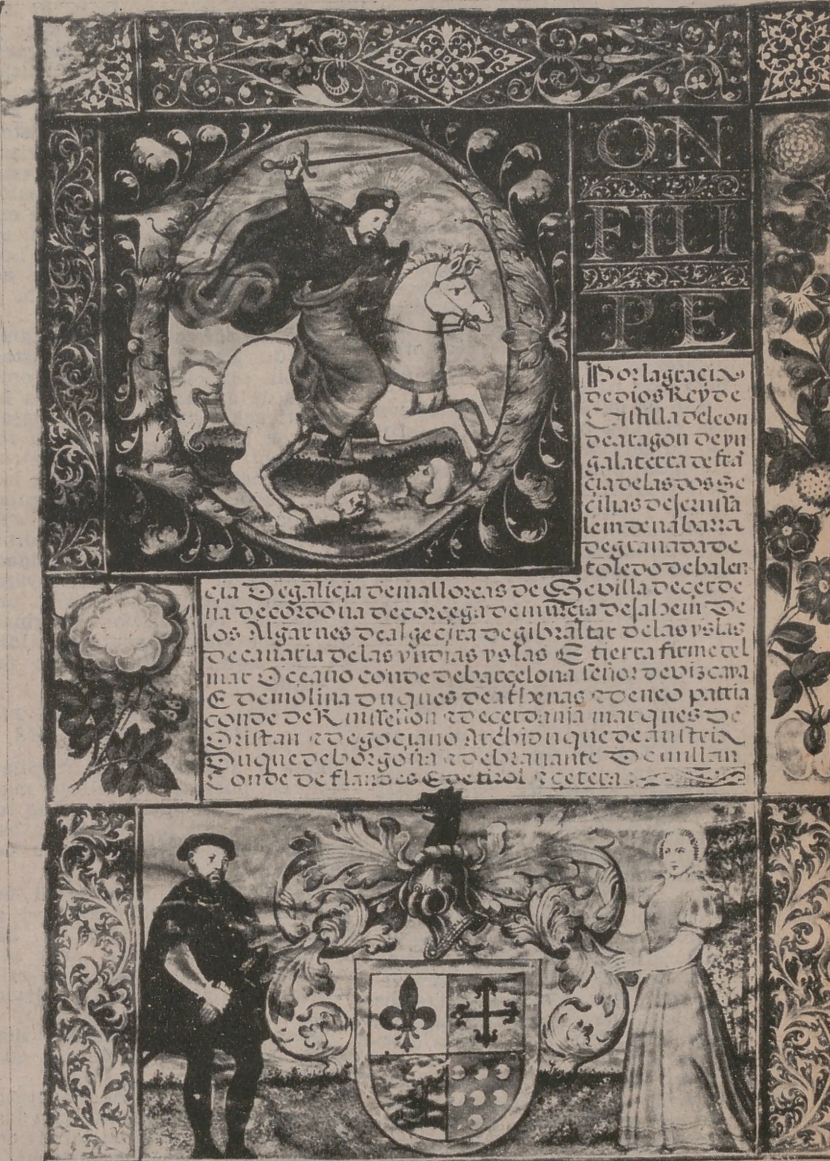 ON
FILI
PE
Por la gracia
de dios Rey de
Castilla de leon
de aragon de yn
galaterra de frã
cia de las dos Se
cilias de Jerusa
lem de nabarra
de granada de
toledo de balen
cia De galicia de mallorcas de Sevilla de cerde
na de cordoua de corcega de murcia de Jahem De
los Algarues de algecira de gibraltar de las yslas
de canaria de las yndias yslas E tierra firme del
mar Oceano conde de barcelona señor de vizcaya
E de molina duques de athenas e de neo patria
conde de Ruisellon e de cerdania marques De
Oristan e de gociano Archiduque de austria
Duque de borgoña e de bravante De millan
Conde de flandes E de tirol e cetera